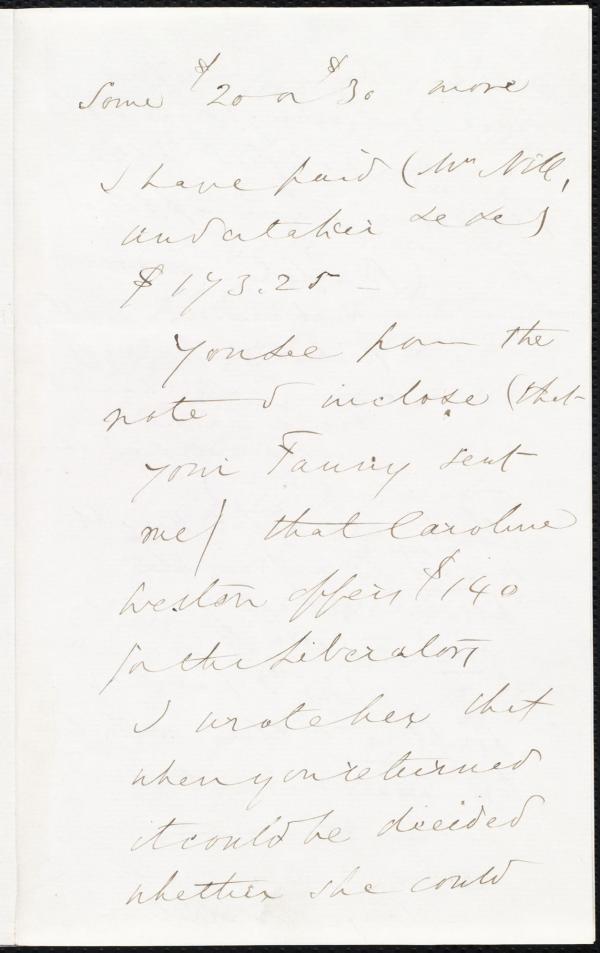 Some $20 or $30 more
I have paid (Mr Nill,
undertaker &c &c)
$173.25 —
You see from the
note I inclose (that
your Fanny sent
me) that Caroline
Weston offers $140
for the Liberators
I wrote her that
when you returned
it could be decided
whether she could